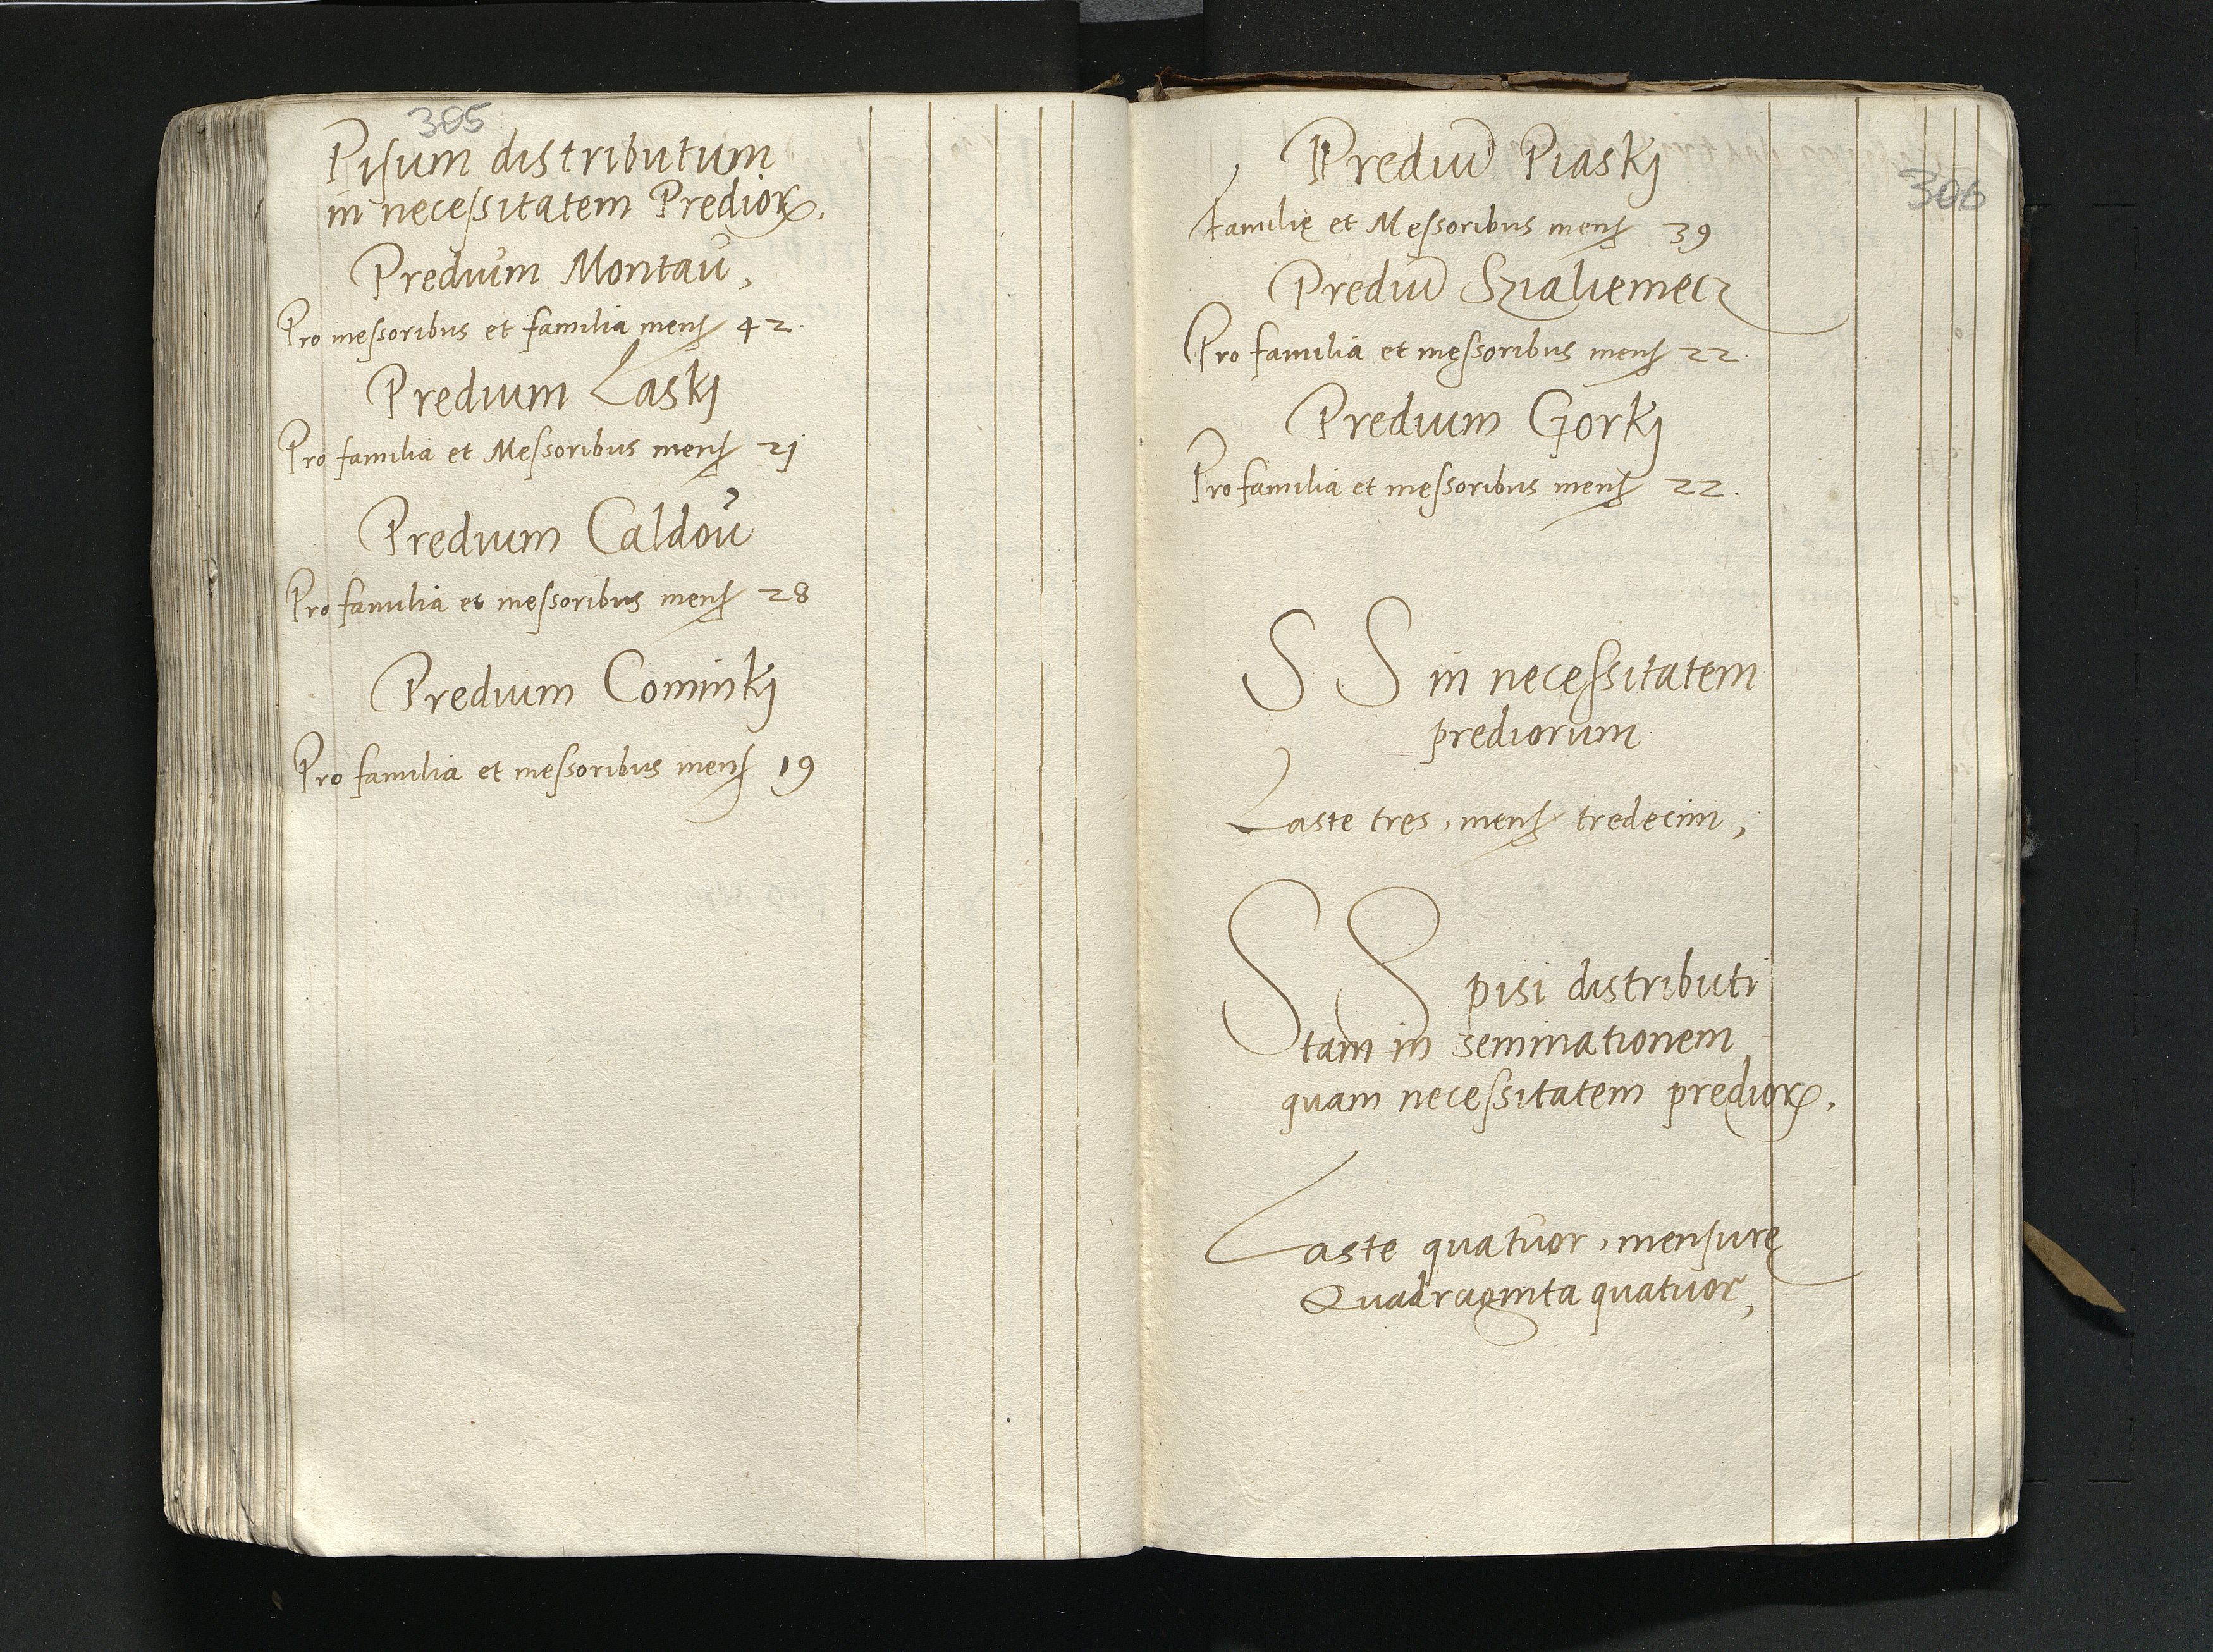 305
Pisum distributum
in necessitatem Predioꝝ.
Predium Montau,
Pro messoribus et familia menß 42.
Predium Laskj
Pro familia et Messoribus menß 21
Predium Caldou
Pro familia et messoribus menß 28
Predium Cominkj
Pro familia et messoribus menß 19
306
Prediũ Piaskj
familię et Messoribus menß 39
Prediũ Szialiemecz
Pro familia et messoribus menß 22.
Predium Gorkj
Pro familia et messoribus menß 22.
S S in necessitatem
prediorum
Laste tres, menß tredecim,
S S pisi distributi
tam in seminationem
quam necessitatem predioꝝ.
Laste quatuor, mensurę
Quadraginta quatuor,